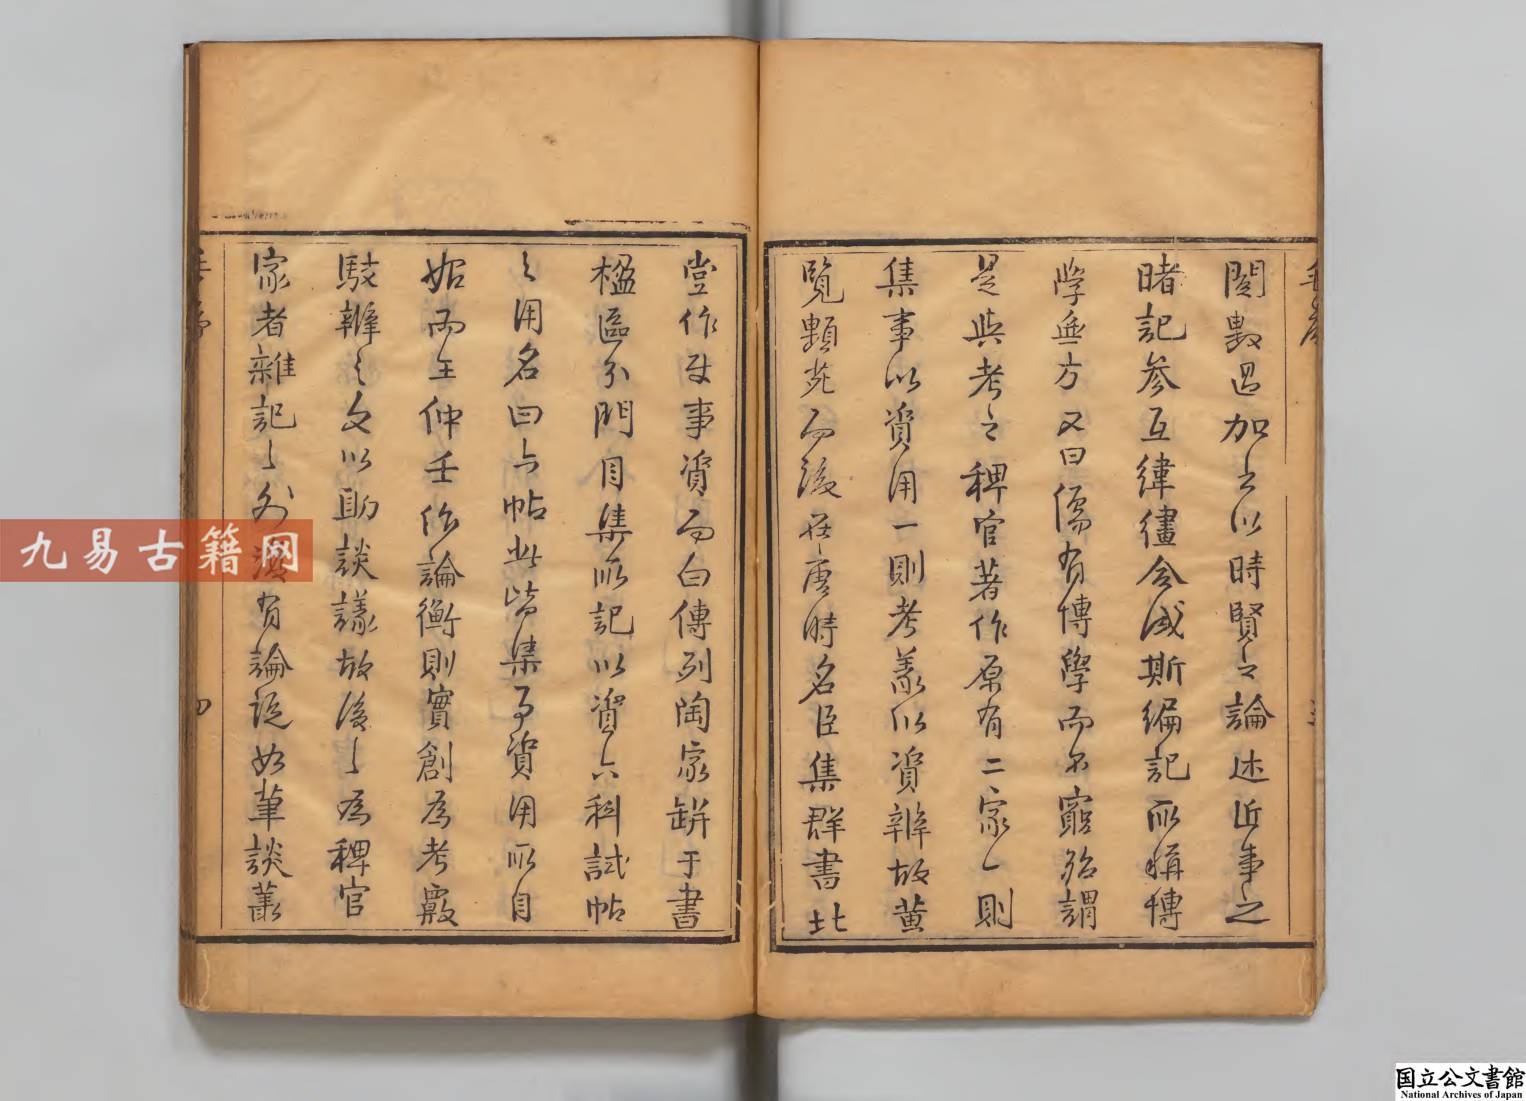 閱數過加之以時賢之論述近事之
睹記參互緯繣合成斯編記所稱博
學無方又曰儒有博學而不窮殆謂
是與考之稗官著作原有二家一則
集事以資用一則考義以資辨故黃
覽類苑而後在唐時名臣集群書北
堂作故事資而白傅列陶家缾于書
楹區分門目集所記以資六科試帖
之用名曰六帖此皆集事資用所自
始而王仲壬作論衡則實創為考覈
駁辨之文以助談議故後之為稗官
家者雜記之外復有論說如筆談叢
四
九易古籍网
国立公文書館
National Archives of Japan